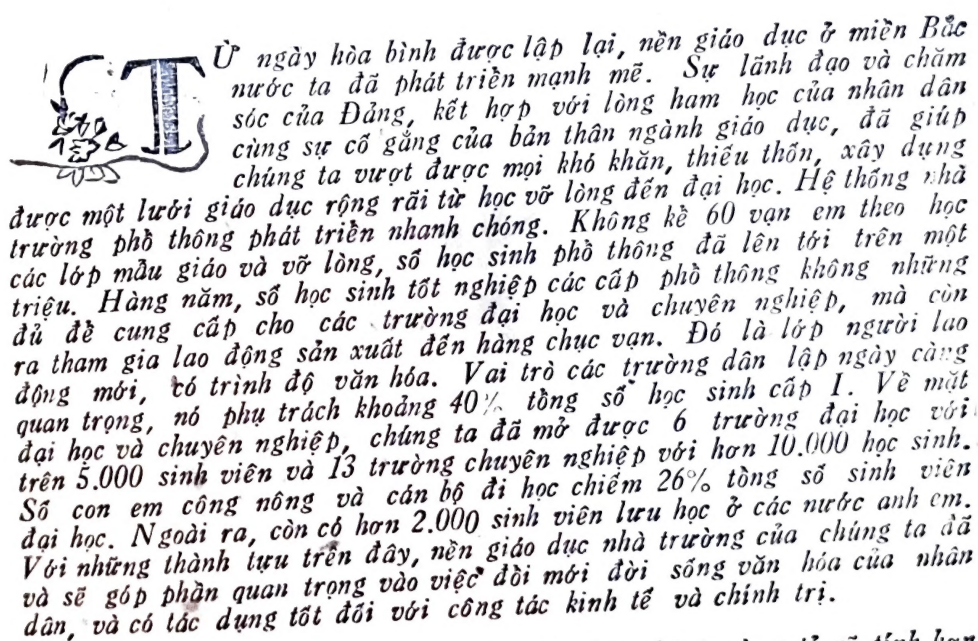 TỪ ngày hòa bình được lập lại, nền giáo dục ở miền Bắc
nước ta đã phát triển mạnh mẽ. Sự lãnh đạo và chăm
sóc của Đảng, kết hợp với lòng ham học của nhân dân
cùng sự cố gắng của bản thân ngành giáo dục, đã giúp
chúng ta vượt được mọi khó khăn, thiếu thốn, xây dựng
được một lưới giáo dục rộng rãi từ học vỡ lòng đến đại học. Hệ thống nhà
trường phổ thông phát triển nhanh chóng. Không kể 60 vạn em theo học
các lớp mẫu giáo và vỡ lòng, số học sinh phổ thông đã lên tới trên một
triệu. Hàng năm, số học sinh tốt nghiệp các cấp phổ thông không những
đủ để cung cấp cho các trường đại học và chuyên nghiệp, mà còn
ra tham gia lao động sản xuất đến hàng chục vạn. Đó là lớp người lao
động mới, có trình độ văn hóa. Vai trò các trường dân lập ngày càng
quan trọng, nó phụ trách khoảng 40% tổng số học sinh cấp I. Về mặt
đại học và chuyên nghiệp, chúng ta đã mở được 6 trường đại học với
trên 5.000 sinh viên và 13 trường chuyên nghiệp với hơn 10.000 học sinh.
Số con em công nông và cán bộ đi học chiếm 26% tổng số sinh viên
đại học. Ngoài ra, còn có hơn 2.000 sinh viên lưu học ở các nước anh em.
Với những thành tựu trên đây, nền giáo dục nhà trường của chúng ta đã
và sẽ góp phần quan trọng vào việc đổi mới đời sống văn hóa của nhân
dân, và có tác dụng tốt đối với công tác kinh tế và chính trị.